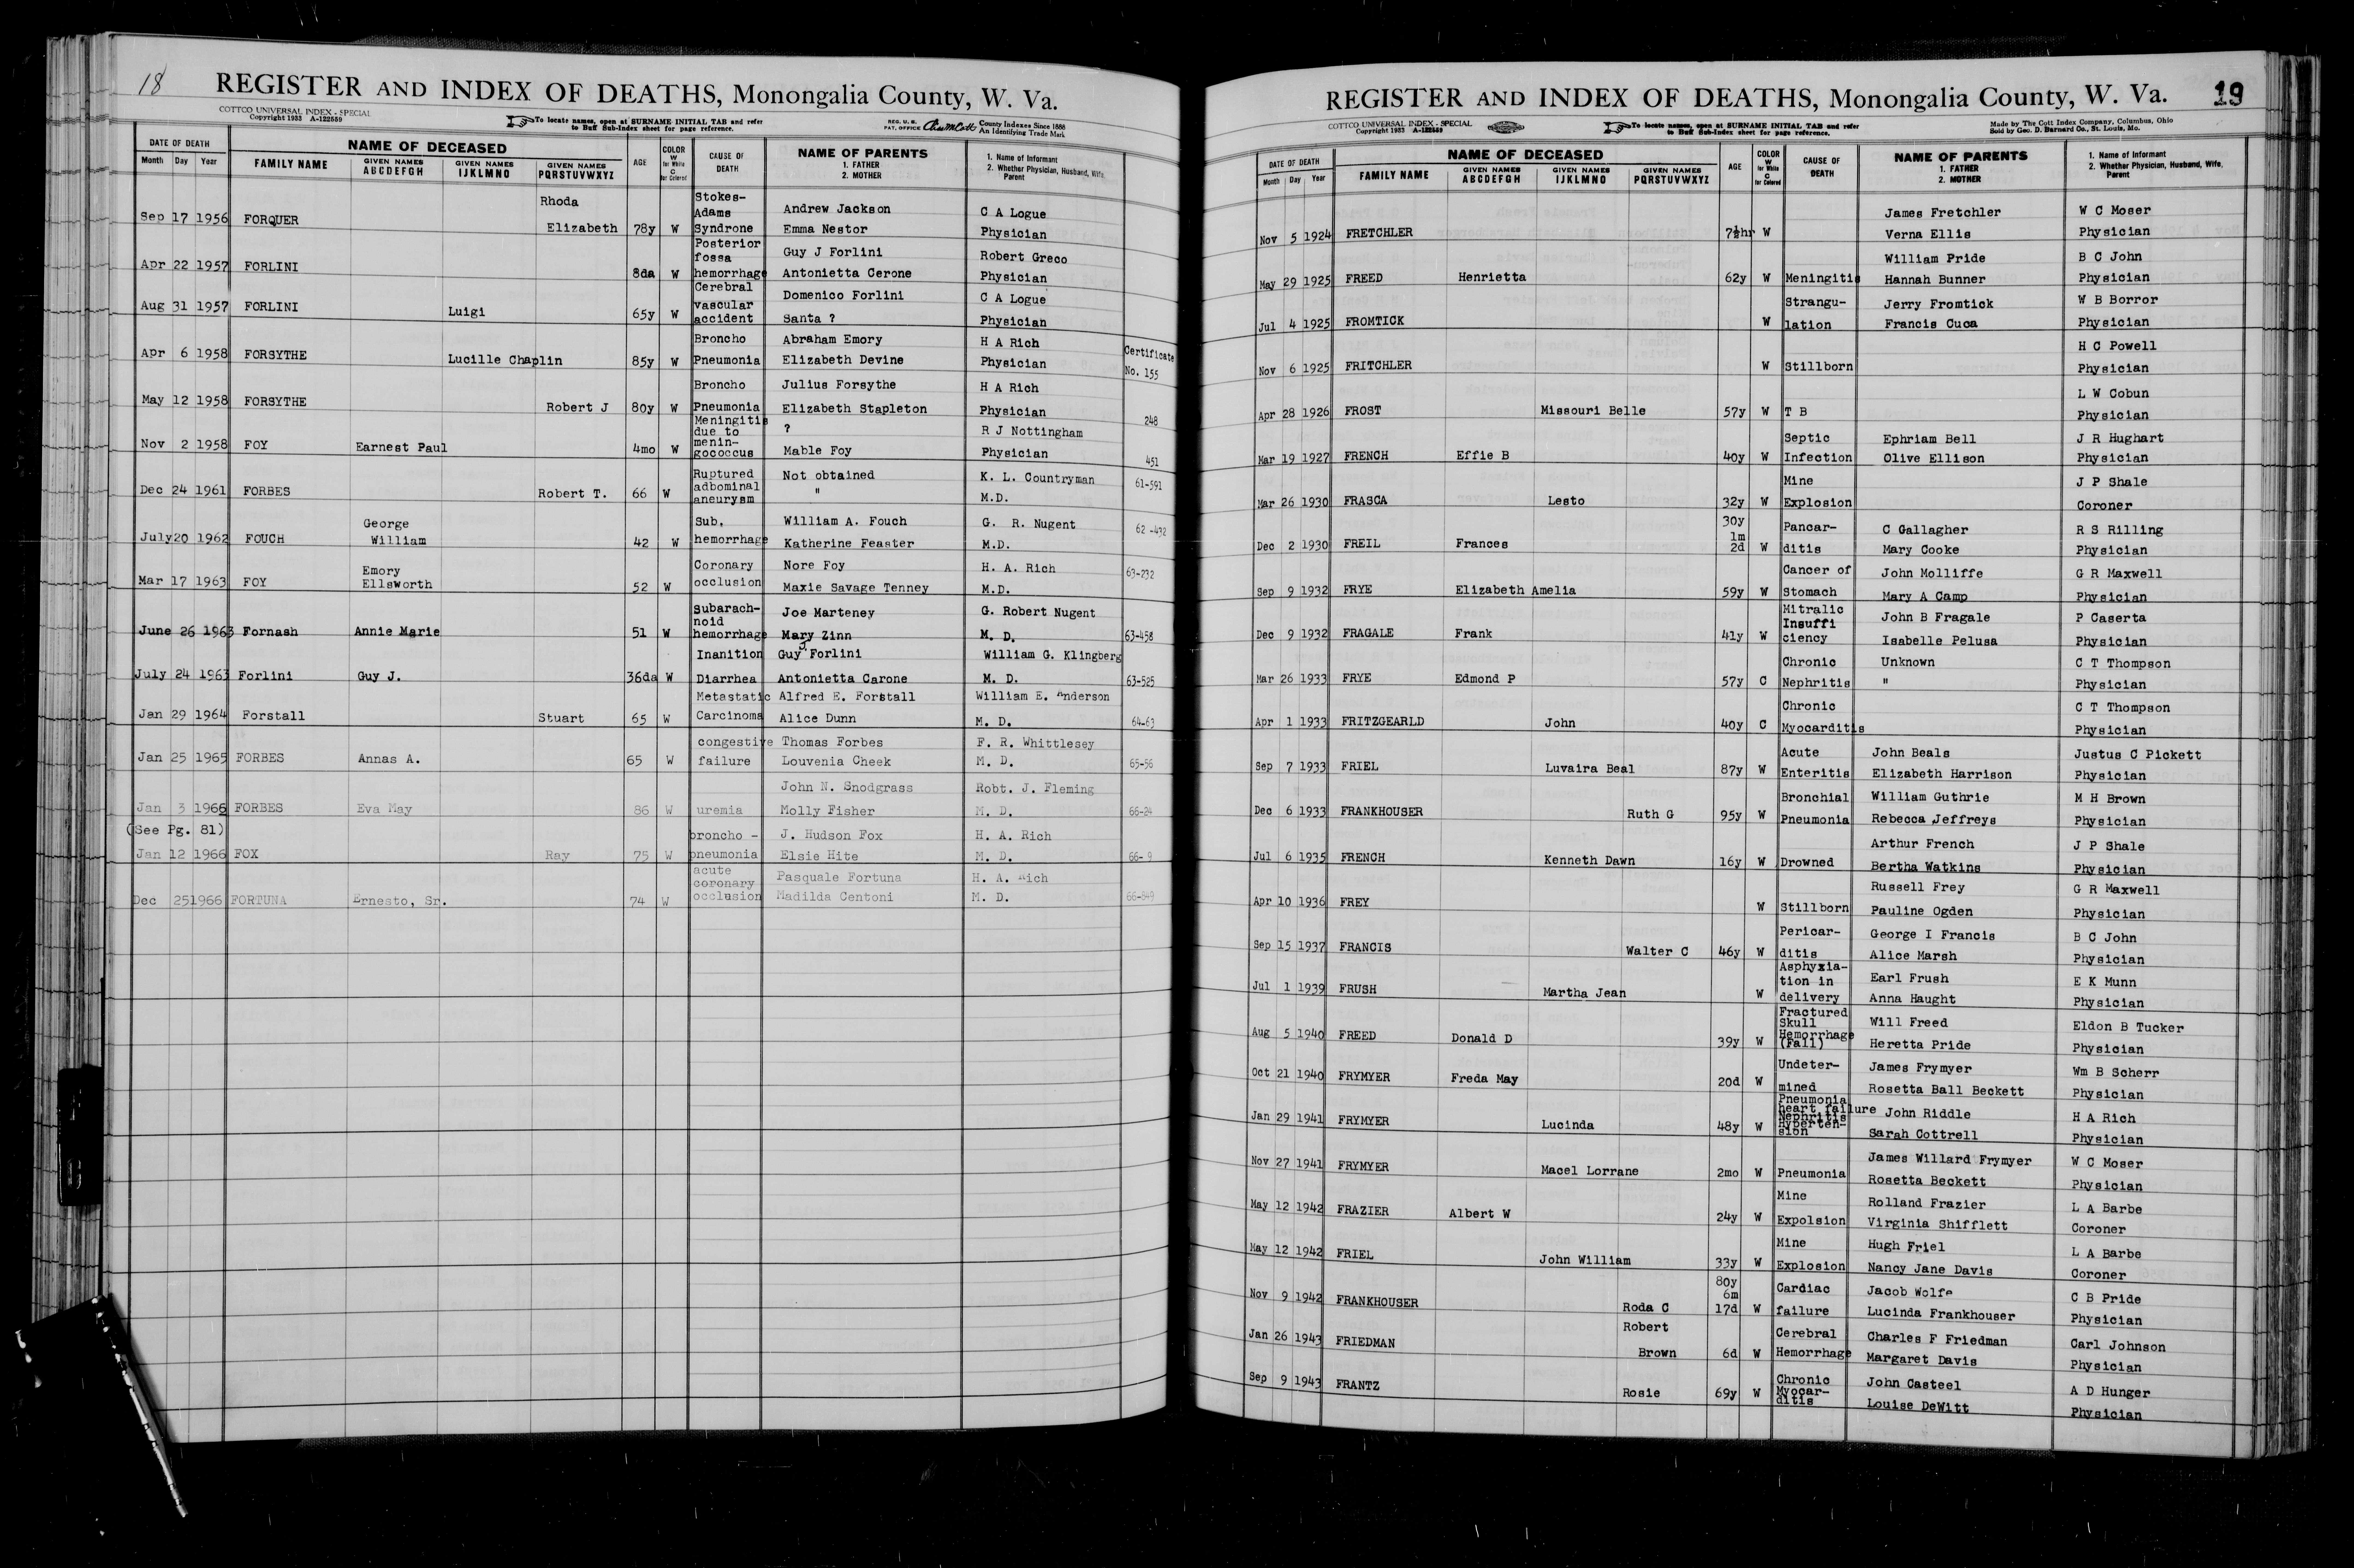 18
REGISTER AND INDEX OF DEATHS, Monongalia County, W. Va.
COTTCO UNIVERSAL INDEX - SPECIAL
Copyright 1933 A-122559
To locate names, open at SURNAME INITIAL TAB and refer
to Buff Sub-Index sheet for page reference.
REG. U. S.
PAT. OFFICE
County Indexes Since 1888
An Identifying Trade Mark
DATE OF DEATH
Month Day Year
NAME OF DECEASED
FAMILY NAME
GIVEN NAMES ABCDEFGH
GIVEN NAMES IJKLMNO
GIVEN NAMES PQRSTUVWXYZ
AGE
COLOR W for White C for Colored
CAUSE OF DEATH
NAME OF PARENTS
1. FATHER
2. MOTHER
1. Name of Informant
2. Whether Physician, Husband, Wife, Parent
Rhoda Stokes-Adams Andrew Jackson C A Logue
Sep 17 1956 FORQUER Elizabeth 78y W Syndrone Emma Nestor Physician
Posterior fossa Guy J Forlini Robert Greco
Apr 22 1957 FORLINI 8da W hemorrhage Antonietta Cerone Physician
Cerebral vascular Domenico Forlini C A Logue
Aug 31 1957 FORLINI Luigi 65y W accident Santa ? Physician
Broncho Abraham Emory H A Rich
Apr 6 1958 FORSYTHE Lucille Chaplin 85y W Pneumonia Elizabeth Devine Physician Certificate No. 155
Broncho Julius Forsythe H A Rich
May 12 1958 FORSYTHE Robert J 80y W Pneumonia Elizabeth Stapleton Physician 248
Meningitis due to ? R J Nottingham
Nov 2 1958 FOY Earnest Paul 4mo W menin-gococcus Mable Foy Physician 451
Ruptured Not obtained K. L. Countryman
Dec 24 1961 FORBES Robert T. 66 W adbominal aneurysm " M.D. 61-591
George Sub, William A. Fouch G. R. Nugent
July20 1962 FOUCH William 42 W hemorrhage Katherine Feaster M.D. 62-432
Emory Coronary Nore Foy H. A. Rich
Mar 17 1963 FOY Ellsworth 52 W occlusion Maxie Savage Tenney M.D. 63-232
Subarach-noid Joe Marteney G. Robert Nugent
June 26 1963 Fornash Annie Marie 51 W hemorrhage Mary Zinn M. D. 63-458
Inanition Guy J Forlini William G. Klingberg
July 24 1963 Forlini Guy J. 36da W Diarrhea Antonietta Carone M. D. 63-525
Metastatic Alfred E. Forstall William E. Anderson
Jan 29 1964 Forstall Stuart 65 W Carcinoma Alice Dunn M. D. 64-63
congestive Thomas Forbes F. R. Whittlesey
Jan 25 1965 FORBES Annas A. 65 W failure Louvenia Cheek M. D. 65-56
John N. Snodgrass Robt. J. Fleming
Jan 3 1966 FORBES Eva May 86 W uremia Molly Fisher M. D. 66-24
(See Pg. 81) broncho - J. Hudson Fox H. A. Rich
Jan 12 1966 FOX Ray 75 W pneumonia Elsie Hite M. D. 66- 9
acute coronary Pasquale Fortuna H. A. Rich
Dec 25 1966 FORTUNA Ernesto, Sr. 74 W occlusion Madilda Centoni M. D.
REGISTER AND INDEX OF DEATHS, Monongalia County, W. Va.
19
COTTCO UNIVERSAL INDEX - SPECIAL
Copyright 1933 A-122559
To locate names, open at SURNAME INITIAL TAB and refer
to Buff Sub-Index sheet for page reference.
Made by The Cott Index Company, Columbus, Ohio
Sold by Geo. D. Barnard Co., St. Louis, Mo.
DATE OF DEATH
Month Day Year
NAME OF DECEASED
FAMILY NAME
GIVEN NAMES ABCDEFGH
GIVEN NAMES IJKLMNO
GIVEN NAMES PQRSTUVWXYZ
AGE
COLOR W for White C for Colored
CAUSE OF DEATH
NAME OF PARENTS
1. FATHER
2. MOTHER
1. Name of Informant
2. Whether Physician, Husband, Wife, Parent
James Fretchler W C Moser
Nov 5 1924 FRETCHLER 7½hr W Verna Ellis Physician
William Pride B C John
May 29 1925 FREED Henrietta 62y W Meningitis Hannah Bunner Physician
Strangu- Jerry Fromtick W B Borror
Jul 4 1925 FROMTICK W lation Francis Cuca Physician
H C Powell
Nov 6 1925 FRITCHLER W Stillborn Physician
L W Cobun
Apr 28 1926 FROST Missouri Belle 57y W T B Physician
Septic Ephriam Bell J R Hughart
Mar 19 1927 FRENCH Effie B 40y W Infection Olive Ellison Physician
Mine J P Shale
Mar 26 1930 FRASCA Lesto 32y W Explosion Coroner
30y 1m Pancar- C Gallagher R S Rilling
Dec 2 1930 FREIL Frances 2d W ditis Mary Cooke Physician
Cancer of John Molliffe G R Maxwell
Sep 9 1932 FRYE Elizabeth Amelia 59y W Stomach Mary A Camp Physician
Mitralic Insuffi John B Fragale P Caserta
Dec 9 1932 FRAGALE Frank 41y W ciency Isabelle Pelusa Physician
Chronic Unknown C T Thompson
Mar 26 1933 FRYE Edmond P 57y C Nephritis " Physician
Chronic C T Thompson
Apr 1 1933 FRITZGEARLD John 40y C Myocarditis Physician
Acute John Beals Justus C Pickett
Sep 7 1933 FRIEL Luvaira Beal 87y W Enteritis Elizabeth Harrison Physician
Bronchial William Guthrie M H Brown
Dec 6 1933 FRANKHOUSER Ruth G 95y W Pneumonia Rebecca Jeffreys Physician
Arthur French J P Shale
Jul 6 1935 FRENCH Kenneth Dawn 16y W Drowned Bertha Watkins Physician
Russell Frey G R Maxwell
Apr 10 1936 FREY W Stillborn Pauline Ogden Physician
Pericar- George I Francis B C John
Sep 15 1937 FRANCIS Walter C 46y W ditis Alice Marsh Physician
Asphyxia-tion in Earl Frush E K Munn
Jul 1 1939 FRUSH Martha Jean W delivery Anna Haught Physician
Fractured Skull Will Freed Eldon B Tucker
Aug 5 1940 FREED Donald D 39y W Hemorrhage (Fall) Heretta Pride Physician
Undeter- James Frymyer Wm B Scherr
Oct 21 1940 FRYMYER Freda May 20d W mined Rosetta Ball Beckett Physician
Pneumonia heart failure John Riddle H A Rich
Jan 29 1941 FRYMYER Lucinda 48y W Nephritis Hyperten-sion Sarah Cottrell Physician
James Willard Frymyer W C Moser
Nov 27 1941 FRYMYER Macel Lorrane 2mo W Pneumonia Rosetta Beckett Physician
Mine Rolland Frazier L A Barbe
May 12 1942 FRAZIER Albert W 24y W Expolsion Virginia Shifflett Coroner
Mine Hugh Friel L A Barbe
May 12 1942 FRIEL John William 33y W Explosion Nancy Jane Davis Coroner
80y 6m Cardiac Jacob Wolfe C B Pride
Nov 9 1942 FRANKHOUSER Roda C 17d W failure Lucinda Frankhouser Physician
Robert Cerebral Charles F Friedman Carl Johnson
Jan 26 1943 FRIEDMAN Brown 6d W Hemorrhage Margaret Davis Physician
Chronic John Casteel A D Hunger
Sep 9 1943 FRANTZ Rosie 69y W Myocar-ditis Louise DeWitt Physician